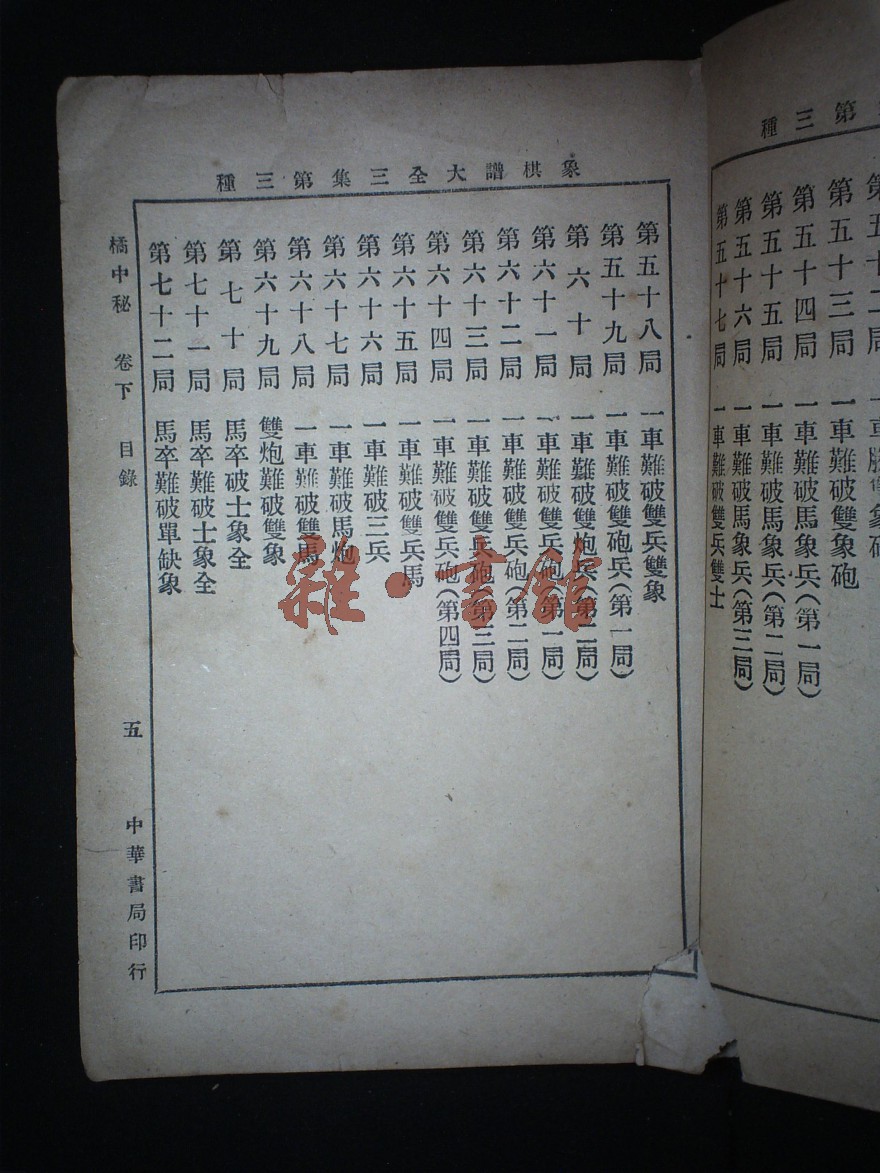 第三種
第五十三局 一車難破雙象砲
第五十四局 一車難破馬象兵(第一局)
第五十五局 一車難破馬象兵(第二局)
第五十六局 一車難破馬象兵(第三局)
第五十七局 一車難破雙兵雙士
象棋譜大全三集第三種
第五十八局 一車難破雙兵雙象
第五十九局 一車難破雙砲兵(第一局)
第六十局 一車難破雙炮兵(第二局)
第六十一局 一車難破雙兵砲(第一局)
第六十二局 一車難破雙兵砲(第二局)
第六十三局 一車難破雙兵砲(第三局)
第六十四局 一車難破雙兵砲(第四局)
第六十五局 一車難破雙兵馬
第六十六局 一車難破三兵
第六十七局 一車難破馬炮
第六十八局 一車難破雙馬
第六十九局 雙炮難破雙象
第七十局 馬卒破士象全
第七十一局 馬卒難破士象全
第七十二局 馬卒難破單缺象
橘中秘 卷下 目錄 五 中華書局印行
雜·書館